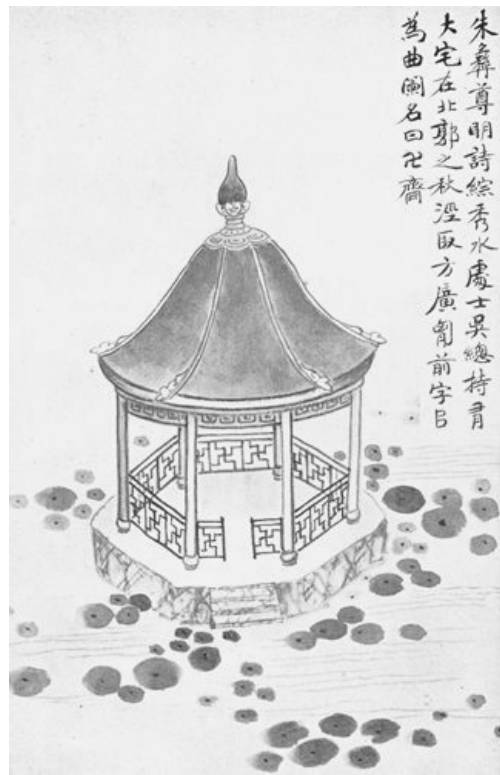 朱彝尊明詩綜秀水處士吳總持有
大宅在北郭之秋涇取方廣匈前字㠯
為曲闌名曰卍齋